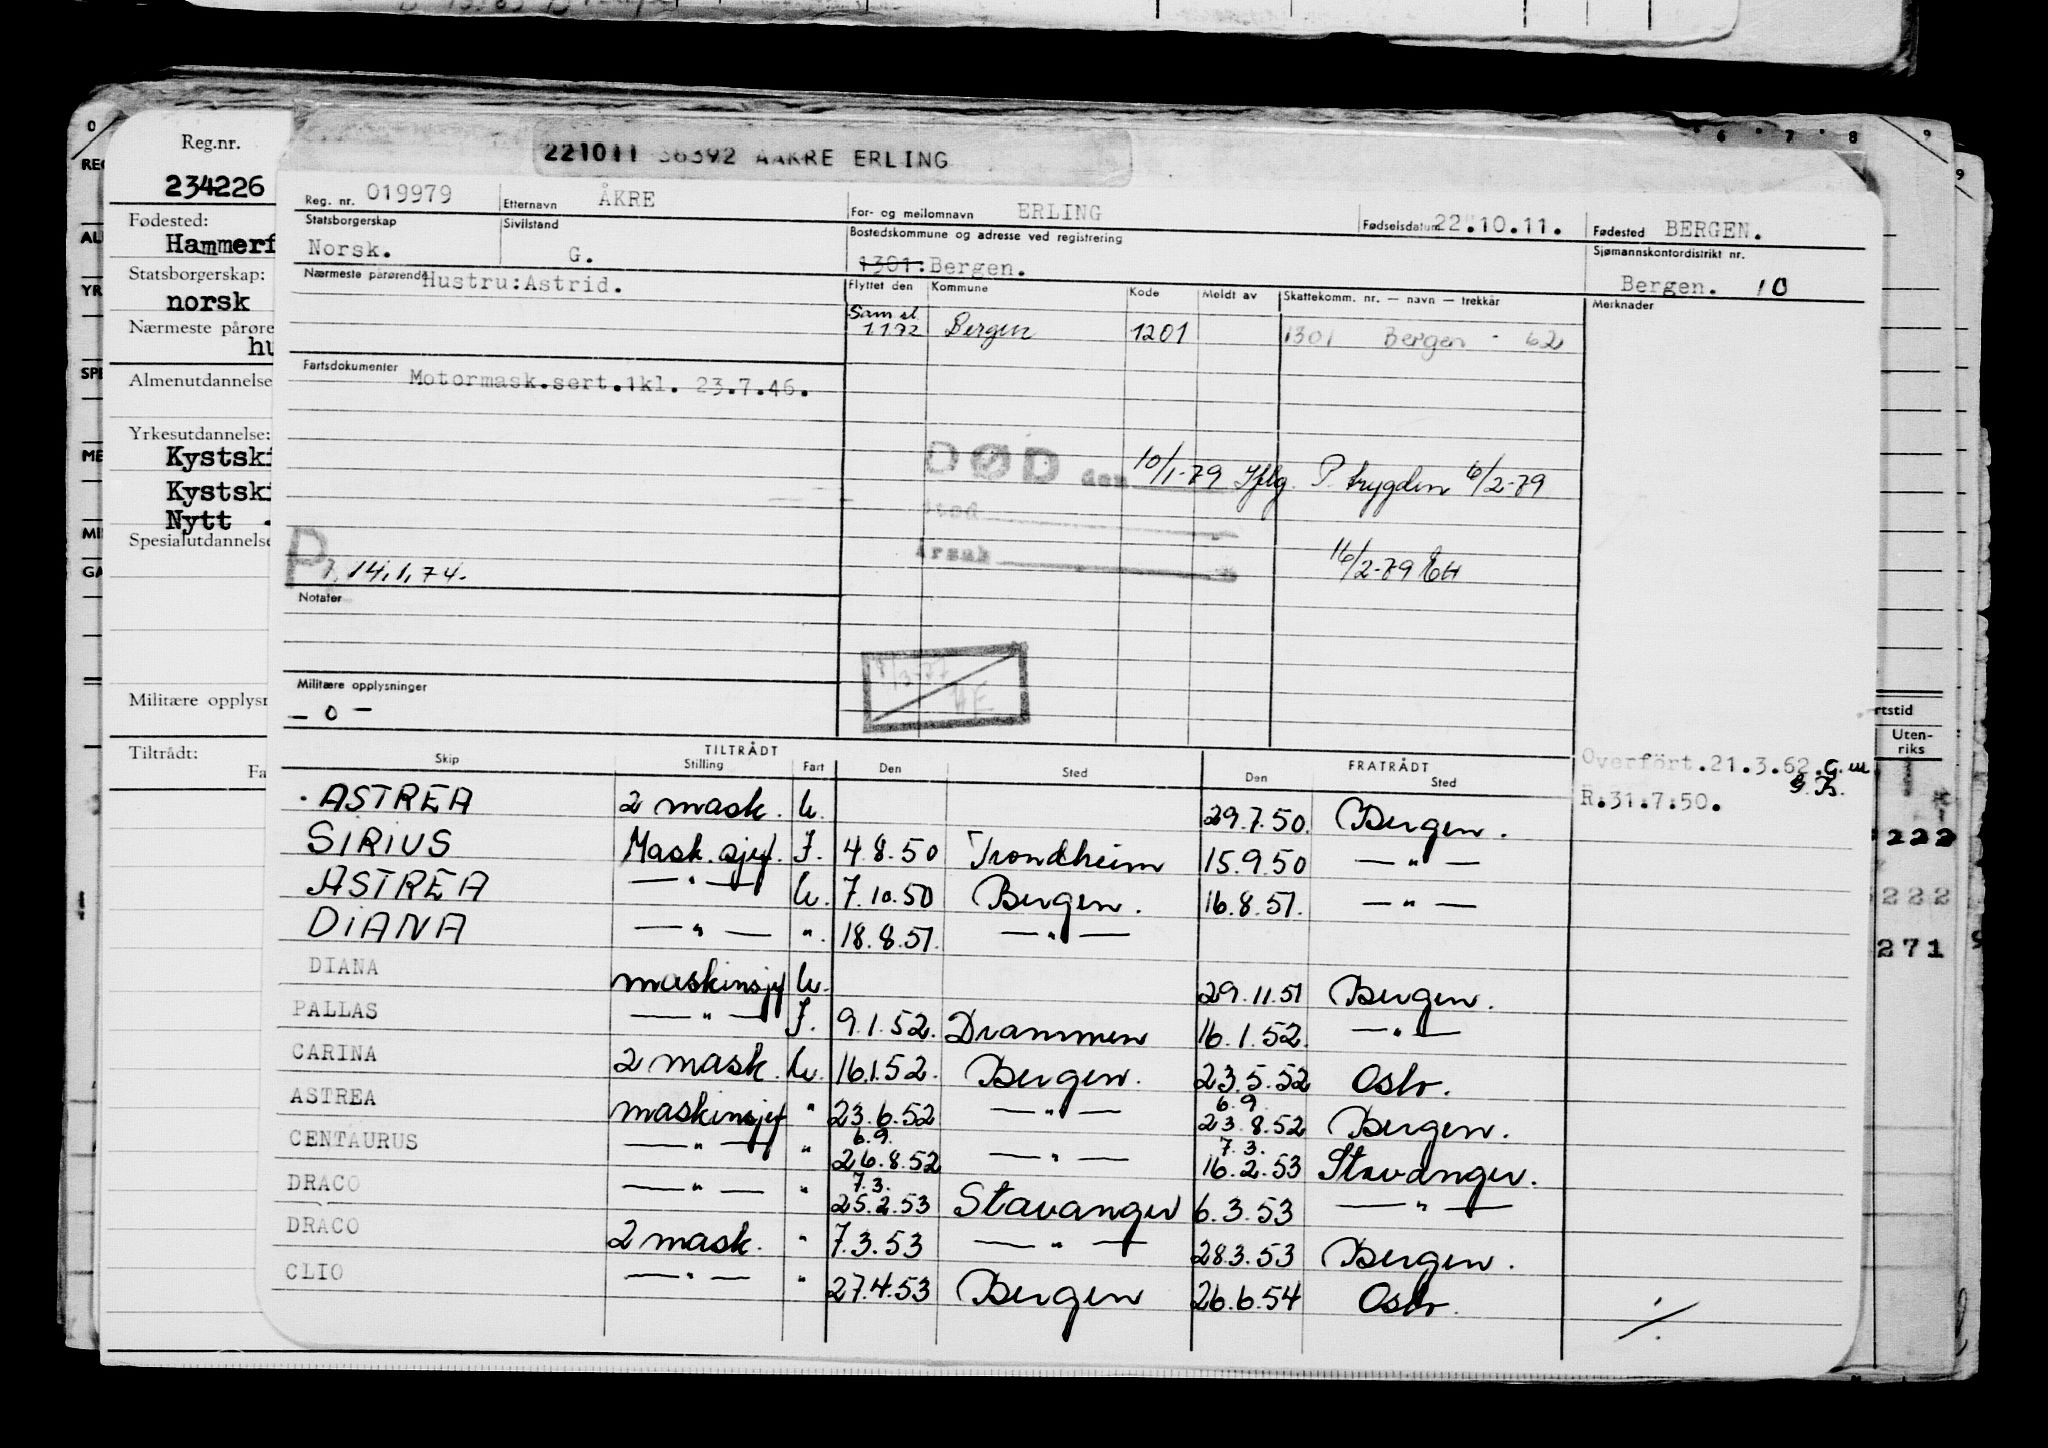 221011 36392 AAKRE ERLING
Reg. nr. 019979 Etternavn ÅKRE For- og mellomnavn ERLING Fødselsdatum 22.10.11. Fødested BERGEN.
Statsborgerskap Norsk. Sivilstand G. Bostedskommune og adresse ved registrering 1301: Bergen. Sjømannskontordistrikt nr. Bergen. 10
Nærmeste pårørende Hustru: Astrid. Flyttet den Kommune Kode Meldt av Skattekomm. nr. — navn — trekkår Merknader
Sam sl. 1.1.72 Bergen 1201 1301 Bergen - 62
Fartsdokumenter Motormask.sert.1kl. 23.7.46.
DØD den 10/1-79 Iflg. P. trygden 6/2-79
Sted
Årsak 16/2-79 EH
P 14.1.74.
Notater
Militære opplysninger
— 0 —
Skip TILTRÅDT Stilling Fart Den Sted FRATRÅDT Den Sted
Overført. 21.3.62. G.M
R.31.7.50.
ASTREA 2 mask. U. 29.7.50. Bergen.
SIRIUS Mask. sjef. I. 4.8.50 Trondheim 15.9.50 — " —
ASTREA — " — U. 7.10.50 Bergen. 16.8.51. — " —
DIANA — " — ". 18.8.51. — " —
DIANA maskinsjef U. 29.11.51 Bergen.
PALLAS — " — I. 9.1.52. Drammen 16.1.52. — " —
CARINA 2 mask. U. 16.1.52. Bergen. 23.5.52 Oslo.
ASTREA maskinsjef " 23.6.52 — " — 6.9. 23.8.52 Bergen.
CENTAURUS — " — " 6.9. 26.8.52 — " — 7.3. 16.2.53 Stavanger.
DRACO — " — " 7.3. 25.2.53 Stavanger 6.3.53 — " —
DRACO 2 mask. " 7.3.53 — " — 28.3.53 Bergen.
CLIO — " — " 27.4.53 Bergen 26.6.54 Oslo.
./.
Reg.nr.
234226
Fødested:
Hammerf
Statsborgerskap:
norsk
Nærmeste pårøre
hu
Almenutdannelse
Yrkesutdannelse:
Kystski
Kystski
Nytt
Spesialutdannelse
Militære opplysn
Tiltrådt:
Fa
rtstid
Uten-
riks
222
222
271